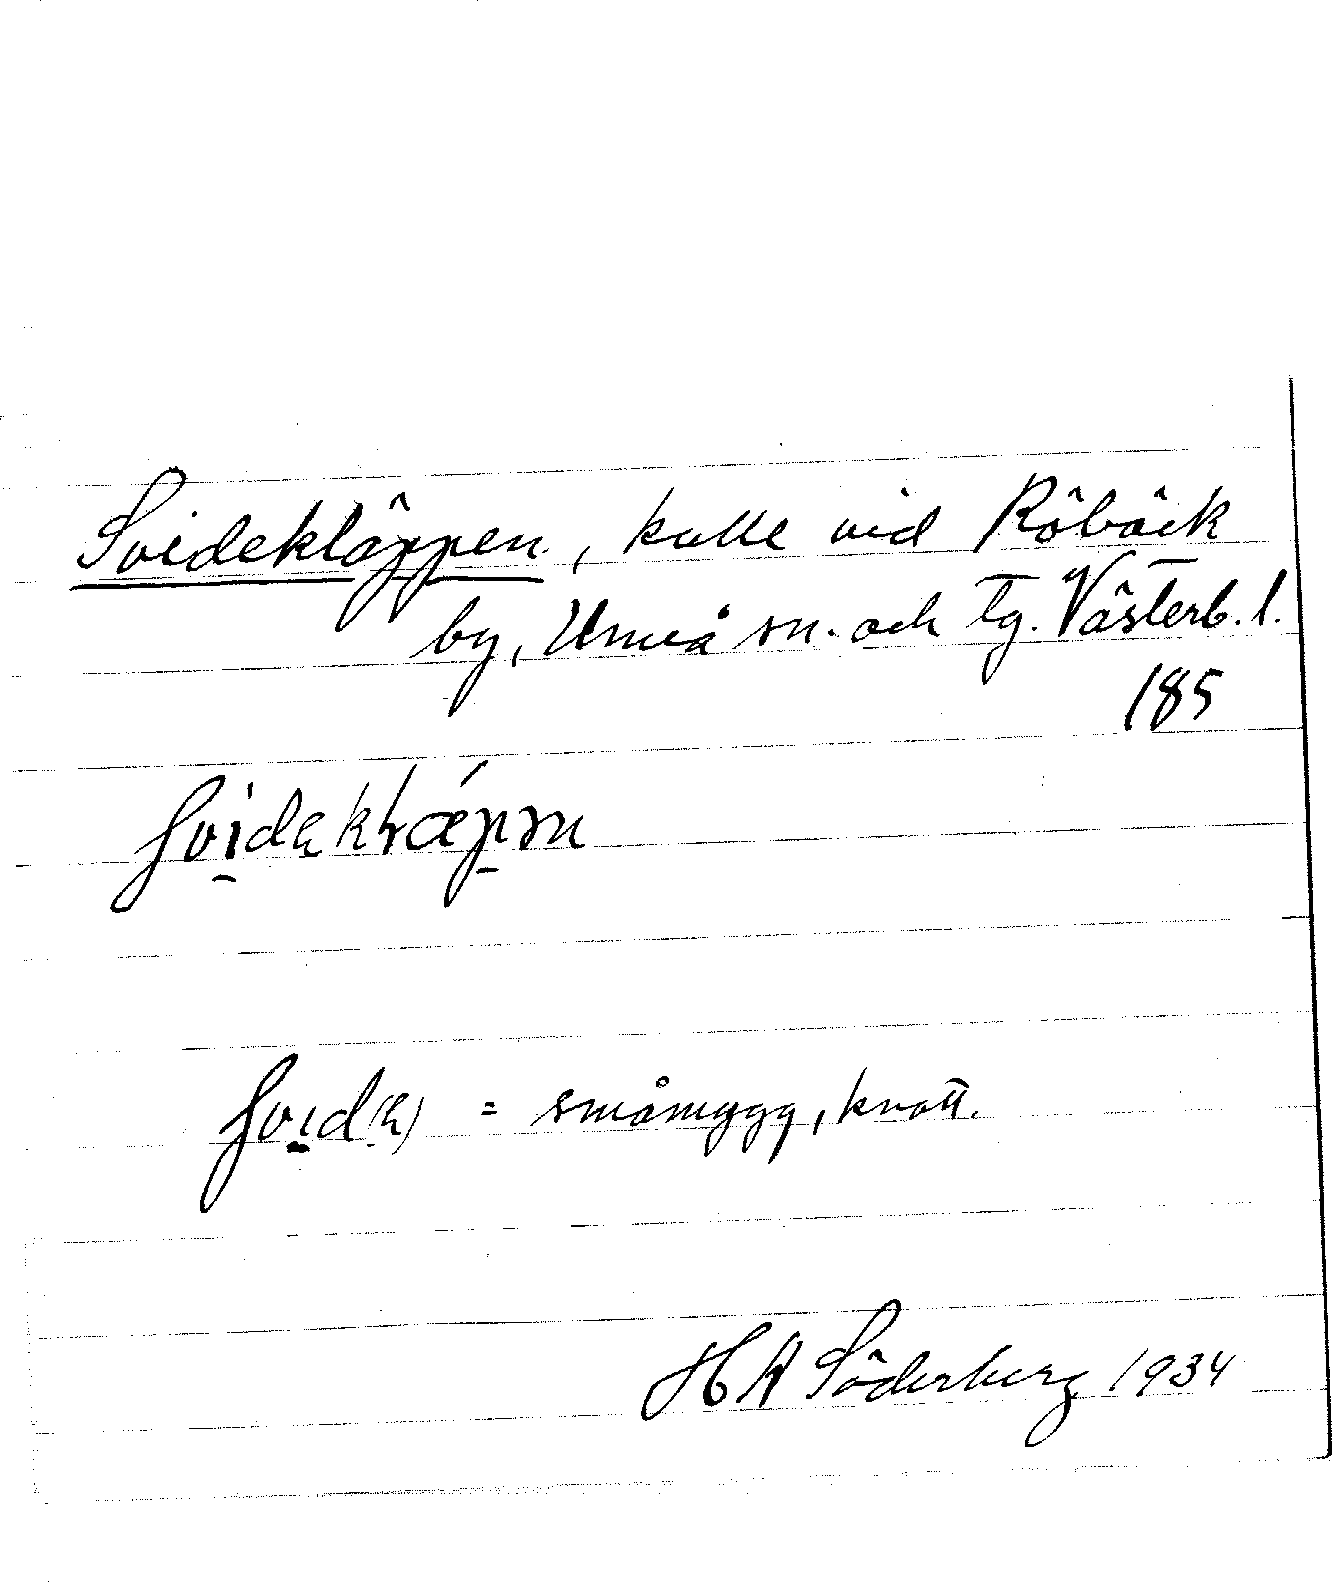 Svidekläppen, kulle vid Röbäck
by, Umeå sn. och tg. Västerb. l.
185
svidekɽæpm
svid(e) = småmygg, knott.
H A Söderberg 1934